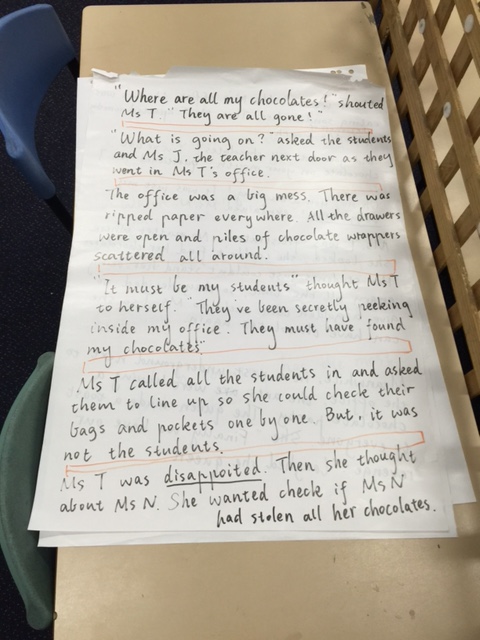 "Where are all my chocolates!" shouted
Ms T. "They are all gone!"
"What is going on?" asked the students
and Ms J, the teacher next door as they
went in Ms T's office.
The office was a big mess. There was
ripped paper everywhere. All the drawers
were open and piles of chocolate wrappers
scattered all around.
"It must be my students" thought Ms T
to herself. "They've been secretly peeking
inside my office. They must have found
my chocolates"
Ms T called all the students in and asked
them to line up so she could check their
bags and pockets one by one. But, it was
not the students.
Ms T was disappoited. Then she thought
about Ms N. She wanted check if Ms N
had stolen all her chocolates.